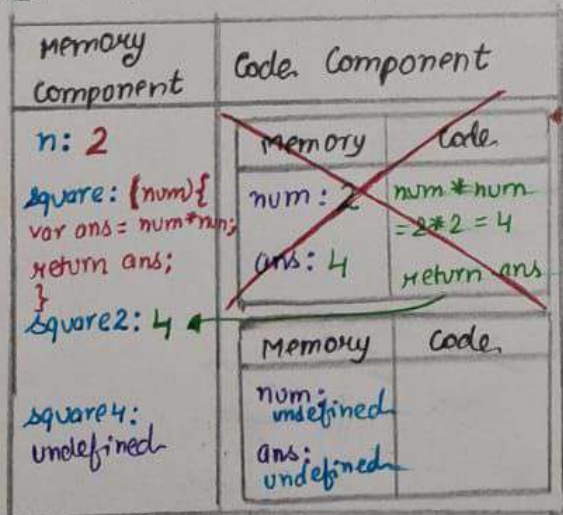 Memory
Component
Code Component
n: 2
square: (num){
var ans = num*num;
return ans;
}
square2: 4
square4:
undefined
Memory
Code
num: 2
ans: 4
num * num
= 2*2 = 4
return ans
Memory
Code
num:
undefined
ans:
undefined